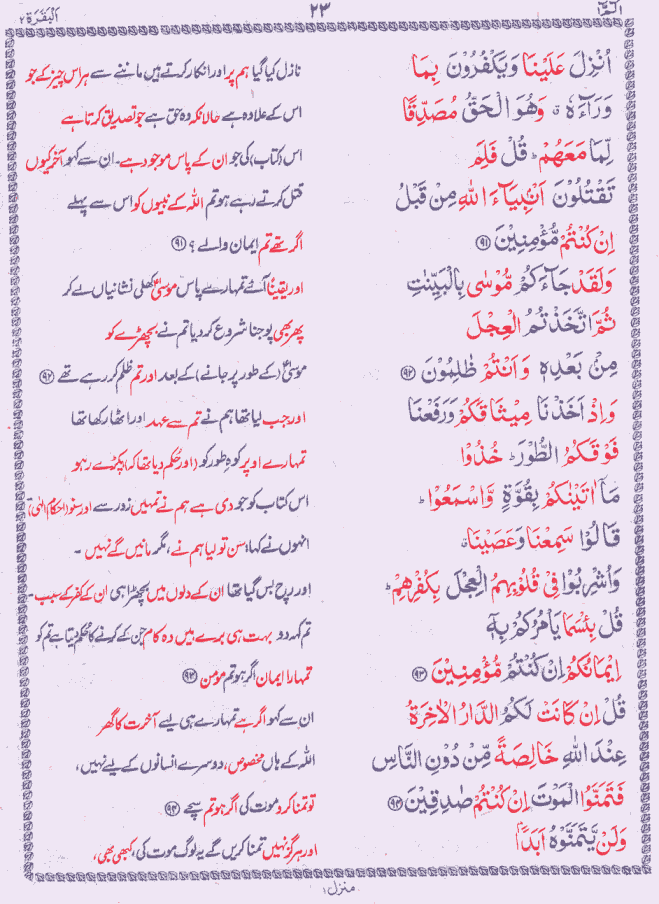 الٓمّٓ ۱
۲۳
اَلْبَقَرَة ۲
اُنْزِلَ عَلَيْنَا وَيَكْفُرُوْنَ بِمَا
نازل کیا گیا ہم پر اور انکار کرتے ہیں ماننے سے ہر اس چیز کے جو
وَرَآءَهٗ ۤ وَهُوَ الْحَقُّ مُصَدِّقًا
اس کے علاوہ ہے حالانکہ وہ حق ہے جو تصدیق کرتا ہے
لِّمَا مَعَهُمْ ؕ قُلْ فَلِمَ
اس (کتاب) کی جو ان کے پاس موجود ہے۔ ان سے کہو آخر کیوں
تَقْتُلُوْنَ اَنْۢبِيَآءَ اللّٰهِ مِنْ قَبْلُ
قتل کرتے رہے ہو تم اللہ کے نبیوں کو اس سے پہلے
اِنْ كُنْتُمْ مُّؤْمِنِيْنَ ﴿۹۱﴾
اگر تھے تم ایمان والے؟ ﴿۹۱﴾
وَلَقَدْ جَآءَكُمْ مُّوْسٰى بِالْبَيِّنٰتِ
اور یقیناً آئے تمہارے پاس موسیٰؑ کھلی نشانیاں لے کر
ثُمَّ اتَّخَذْتُمُ الْعِجْلَ
پھر بھی پوجنا شروع کر دیا تم نے بچھڑے کو
مِنْۢ بَعْدِهٖ وَاَنْتُمْ ظٰلِمُوْنَ ﴿۹۲﴾
موسیٰؑ (کے طور پر جانے) کے بعد اور تم ظلم کر رہے تھے ﴿۹۲﴾
وَاِذْ اَخَذْنَا مِيْثَاقَكُمْ وَرَفَعْنَا
اور جب لیا تھا ہم نے تم سے عہد اور اٹھا رکھا تھا
فَوْقَكُمُ الطُّوْرَ ؕ خُذُوْا
تمہارے اوپر کوہِ طور کو (اور حکم دیا تھا کہ) پکڑے رہو
مَآ اٰتَيْنٰكُمْ بِقُوَّةٍ وَّاسْمَعُوْا ؕ
اس کتاب کو جو دی ہے ہم نے تمہیں زور سے اور سنو (احکامِ الٰہی)
قَالُوْا سَمِعْنَا وَعَصَيْنَا ۤ
انہوں نے کہا، سن تو لیا ہم نے، مگر مانیں گے نہیں۔
وَاُشْرِبُوْا فِيْ قُلُوْبِهِمُ الْعِجْلَ بِكُفْرِهِمْ ؕ
اور رچ بس گیا تھا ان کے دلوں میں بچھڑا ہی ان کے کفر کے سبب۔
قُلْ بِئْسَمَا يَاْمُرُكُمْ بِهٖٓ
تم کہہ دو بہت ہی برے ہیں وہ کام جن کے کرنے کا حکم دیتا ہے تم کو
اِيْمَانُكُمْ اِنْ كُنْتُمْ مُّؤْمِنِيْنَ ﴿۹۳﴾
تمہارا ایمان اگر ہو تم مومن ﴿۹۳﴾
قُلْ اِنْ كَانَتْ لَكُمُ الدَّارُ الْاٰخِرَةُ
ان سے کہو اگر ہے تمہارے ہی لیے آخرت کا گھر
عِنْدَ اللّٰهِ خَالِصَةً مِّنْ دُوْنِ النَّاسِ
اللہ کے ہاں مخصوص، دوسرے انسانوں کے لیے نہیں،
فَتَمَنَّوُا الْمَوْتَ اِنْ كُنْتُمْ صٰدِقِيْنَ ﴿۹۴﴾
تو تمنا کرو موت کی اگر ہو تم سچے ﴿۹۴﴾
وَلَنْ يَّتَمَنَّوْهُ اَبَدًۢا
اور ہرگز نہیں تمنا کریں گے یہ لوگ موت کی، کبھی بھی،
منزل ۱